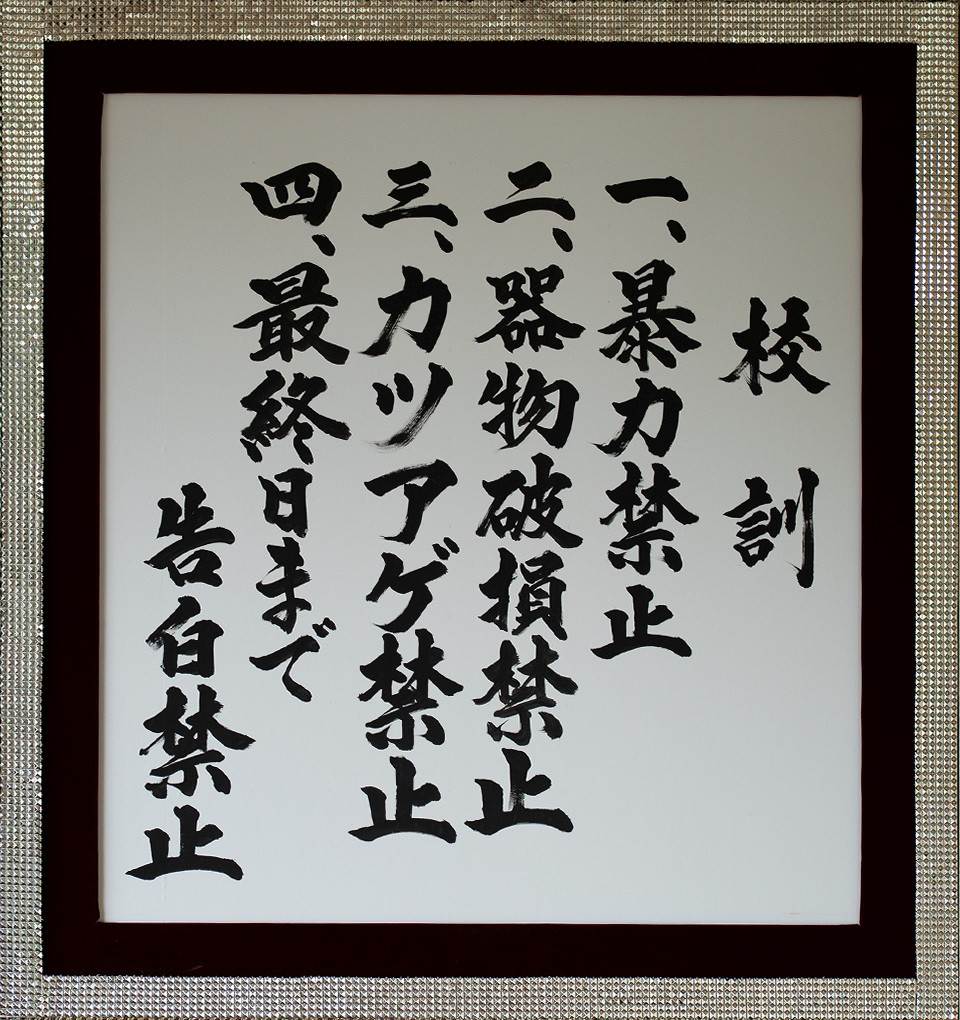 校訓
一、暴力禁止
二、器物破損禁止
三、カツアゲ禁止
四、最終日まで
告白禁止